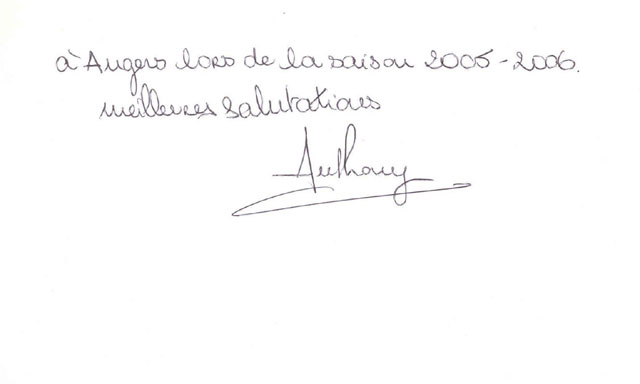 à Angers lors de la saison 2005-2006.
meilleures salutations
Anthony